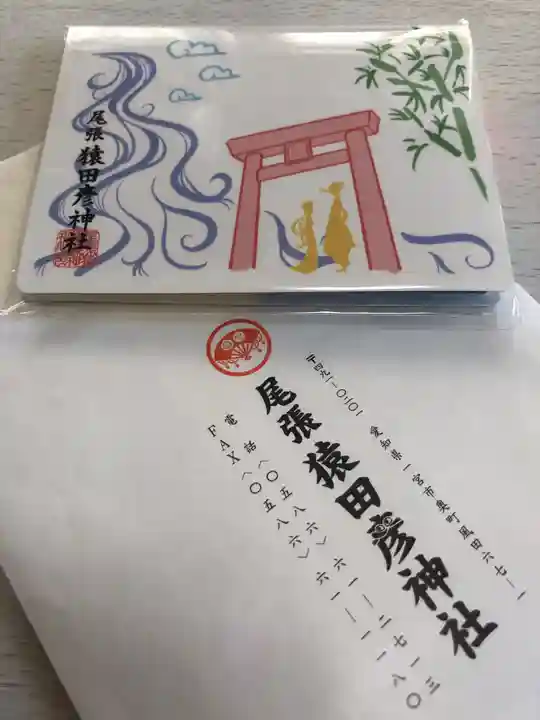 尾張猿田彦神社
〒四九一-〇二〇一 愛知県一宮市奥町風田六七-一
尾張猿田彦神社
電話〈〇五八六〉六一-二七一三
FAX〈〇五八六〉六一-一一八〇